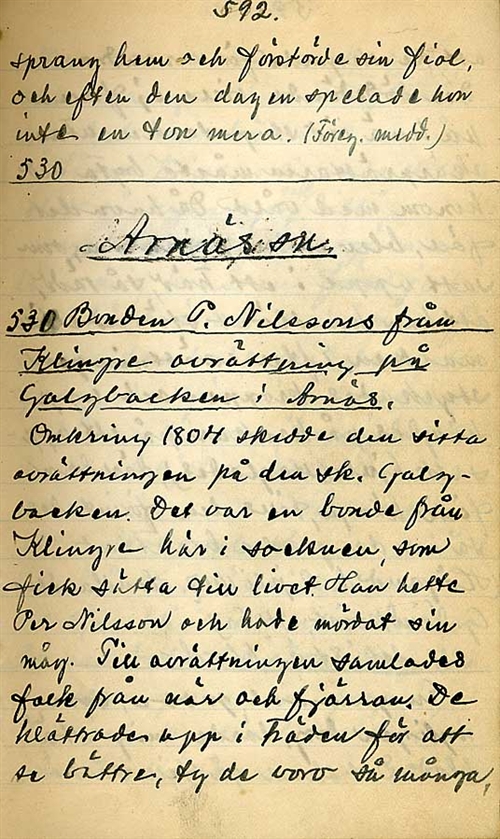 592.
sprang hem och förstörde sin fiol,
och efter den dagen spelade hon
inte en ton mera. (Föreg. medd.)
530
Arnäs sn.
530 Bonden P. Nilssons från
Klingre avrättning på
Galgbacken i Arnäs.
Omkring 1804 skedde den sista
avrättningen på den sk. Galg-
backen. Det var en bonde från
Klingre här i socknen, som
fick sätta till livet. Han hette
Per Nilsson och hade mördat sin
måg. Till avrättningen samlades
folk från när och fjärran. De
klättrade upp i träden för att
se bättre, ty de voro så många,